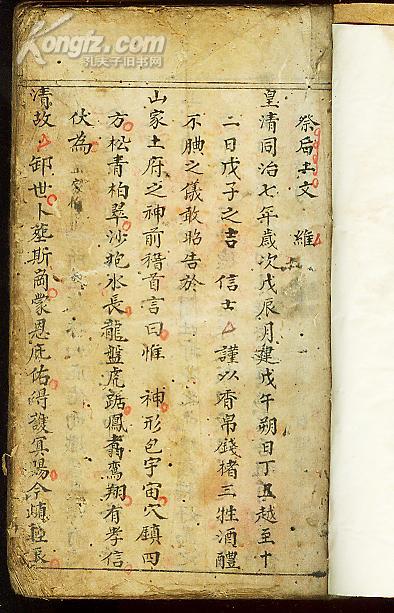 Kongfz.com
孔夫子旧书网
祭后土文 維
皇清同治七年歲次戊辰月建戊午朔日丁丑越至十
二日戊子之吉 信士ム謹以香帛錢楮三牲酒醴
不腆之儀敢昭告於
山家土府之神前稽首言曰惟 神形包宇宙穴鎮四
方松青柏翠沙抱水長龍盤虎踞鳳翥鸞翔有孝信
伏為
清故ム卸世卜塟斯崗蒙恩庇佑得護真陽今